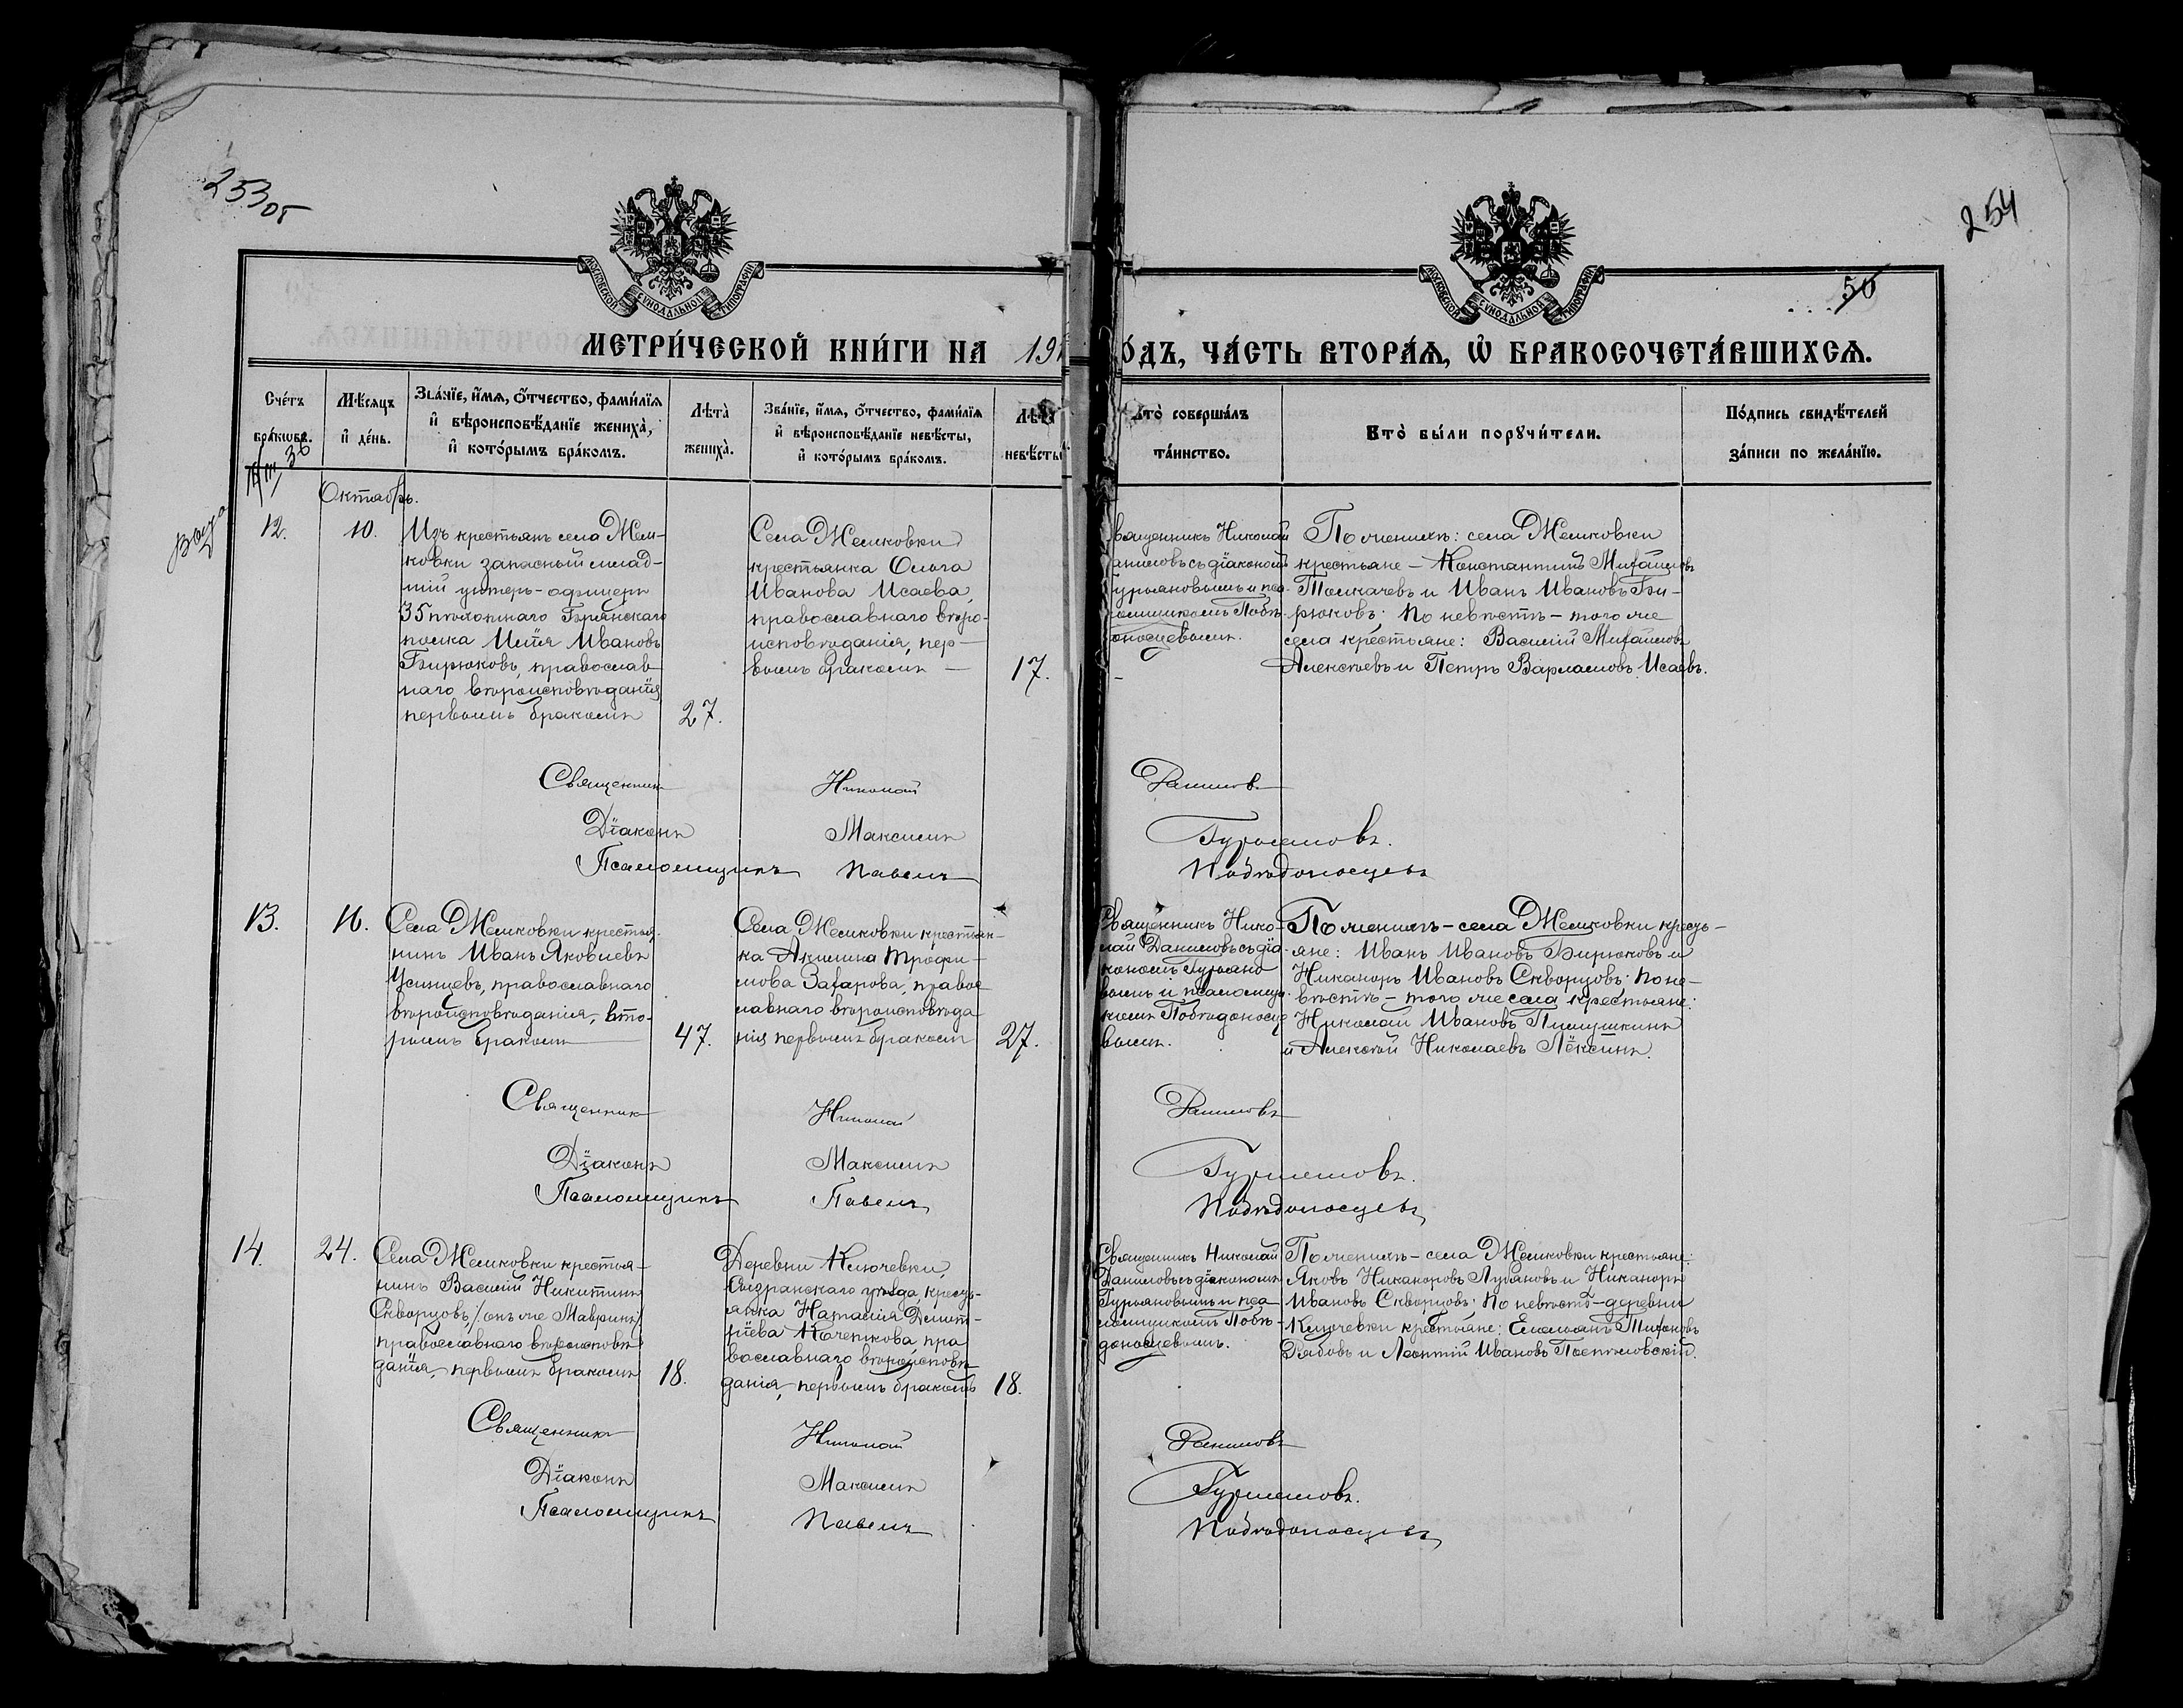 253 об
254
50
МОСКОВСКОЙ СѴНОДАЛЬНОЙ ТИПОГРАФІИ
МОСКОВСКОЙ СѴНОДАЛЬНОЙ ТИПОГРАФІИ
МЕТРИ́ЧЕСКОЙ КНИ́ГИ НА 191
О́ДЪ, ЧА́СТЬ ВТОРА́Ѧ, Ѡ҆ БРАКОСОЧЕТА́ВШИХСѦ.
Сче́тъ бра́кѡвъ.
Мѣ́сяцъ и҆ де́нь.
Зва́нїе, и҆́мѧ, о҆́тчество, фами́лїѧ
и҆ вѣроисповѣ́данїе жениха̀,
и҆ кото́рымъ бра́комъ.
Лѣта̀ жениха̀.
Зва́нїе, и҆́мѧ, о҆́тчество, фами́лїѧ
и҆ вѣроисповѣ́данїе невѣ́сты,
и҆ кото́рымъ бра́комъ.
Лѣта̀ невѣ́сты
Кто̀ соверша́лъ та́инство.
Кто̀ бы́ли порꙋчи́тели.
По́дпись свидѣ́телей за́писи по жела́нїю.
36
Октябрь.
12.
10.
Изъ крестьянъ села Жем-
ковки запасный млад-
шій унтеръ-офицеръ
35 пѣхотнаго Брянскаго
полка Илія Ивановъ
Бирюковъ, православ-
наго вѣроисповѣданія
первымъ бракомъ
27.
Села Жемковки
крестьянка Ольга
Иванова Исаева,
православнаго вѣро-
исповѣданія, пер-
вымъ бракомъ —
17.
вященникъ Николай
аниловъ съ діакономъ
Гурьяновымъ и пса-
ломщикомъ Побѣ-
доносцевымъ.
По женихѣ: села Жемковки
крестьяне — Константинъ Михайловъ
Толкачевъ и Иванъ Ивановъ Би-
рюковъ; по невѣстѣ — того же
села крестьяне: Василій Михайловъ
Алексѣевъ и Петръ Варламовъ Исаевъ.
Священникъ Николай Даниловъ
Діаконъ Максимъ Гурьяновъ.
Псаломщикъ Павелъ Побѣдоносцевъ
13.
16.
Села Жемковки крестья-
нинъ Иванъ Яковлевъ
православнаго
вѣроисповѣданія, вто-
рымъ бракомъ
47.
Села Жемковки крестьян-
ка Акилина Трофи-
мова Захарова, право-
славнаго вѣроисповѣда
нія первымъ бракомъ
27.
Священникъ Нико-
лай Даниловъ съ діа-
кономъ Гурьяно
вымъ и псаломщи-
комъ Побѣдоносце
вымъ.
По женихѣ — села Жемковки кресть-
яне: Иванъ Ивановъ Бирюковъ и
Никаноръ Ивановъ Скворцовъ; по не-
вѣстѣ — того же села крестьяне:
Николай Ивановъ Пимушкинъ
и Алексѣй Николаевъ Лёксинъ.
Священникъ Николай Даниловъ
Діаконъ Максимъ Гурьяновъ.
Псаломщикъ Павелъ Побѣдоносцевъ
14.
24.
Села Жемковки крестья-
нинъ Василій Никитинъ
Скворцовъ, /онъ же Мавринъ/
православнаго вѣроисповѣ
данія, первымъ бракомъ
18.
Деревни Ключевки,
Сызранскаго уѣзда, кресть-
янка Наталія Димит-
ріева Кочеткова, пра
вославнаго вѣроисповѣ
данія, первымъ бракомъ
18.
Священникъ Николай
Даниловъ съ діакономъ
Гурьяновымъ и пса-
ломщикомъ Побѣ-
доносцевымъ.
По женихѣ — села Жемковки крестьяне:
Яковъ Никаноровъ Лукановъ и Никаноръ
Ивановъ Скворцовъ; по невѣстѣ — деревни
Ключевки крестьяне: Емельянъ Тихоновъ
Рябовъ и Леонтій Ивановъ
Священникъ Николай Даниловъ
Діаконъ Максимъ Гурьяновъ.
Псаломщикъ Павелъ Побѣдоносцевъ